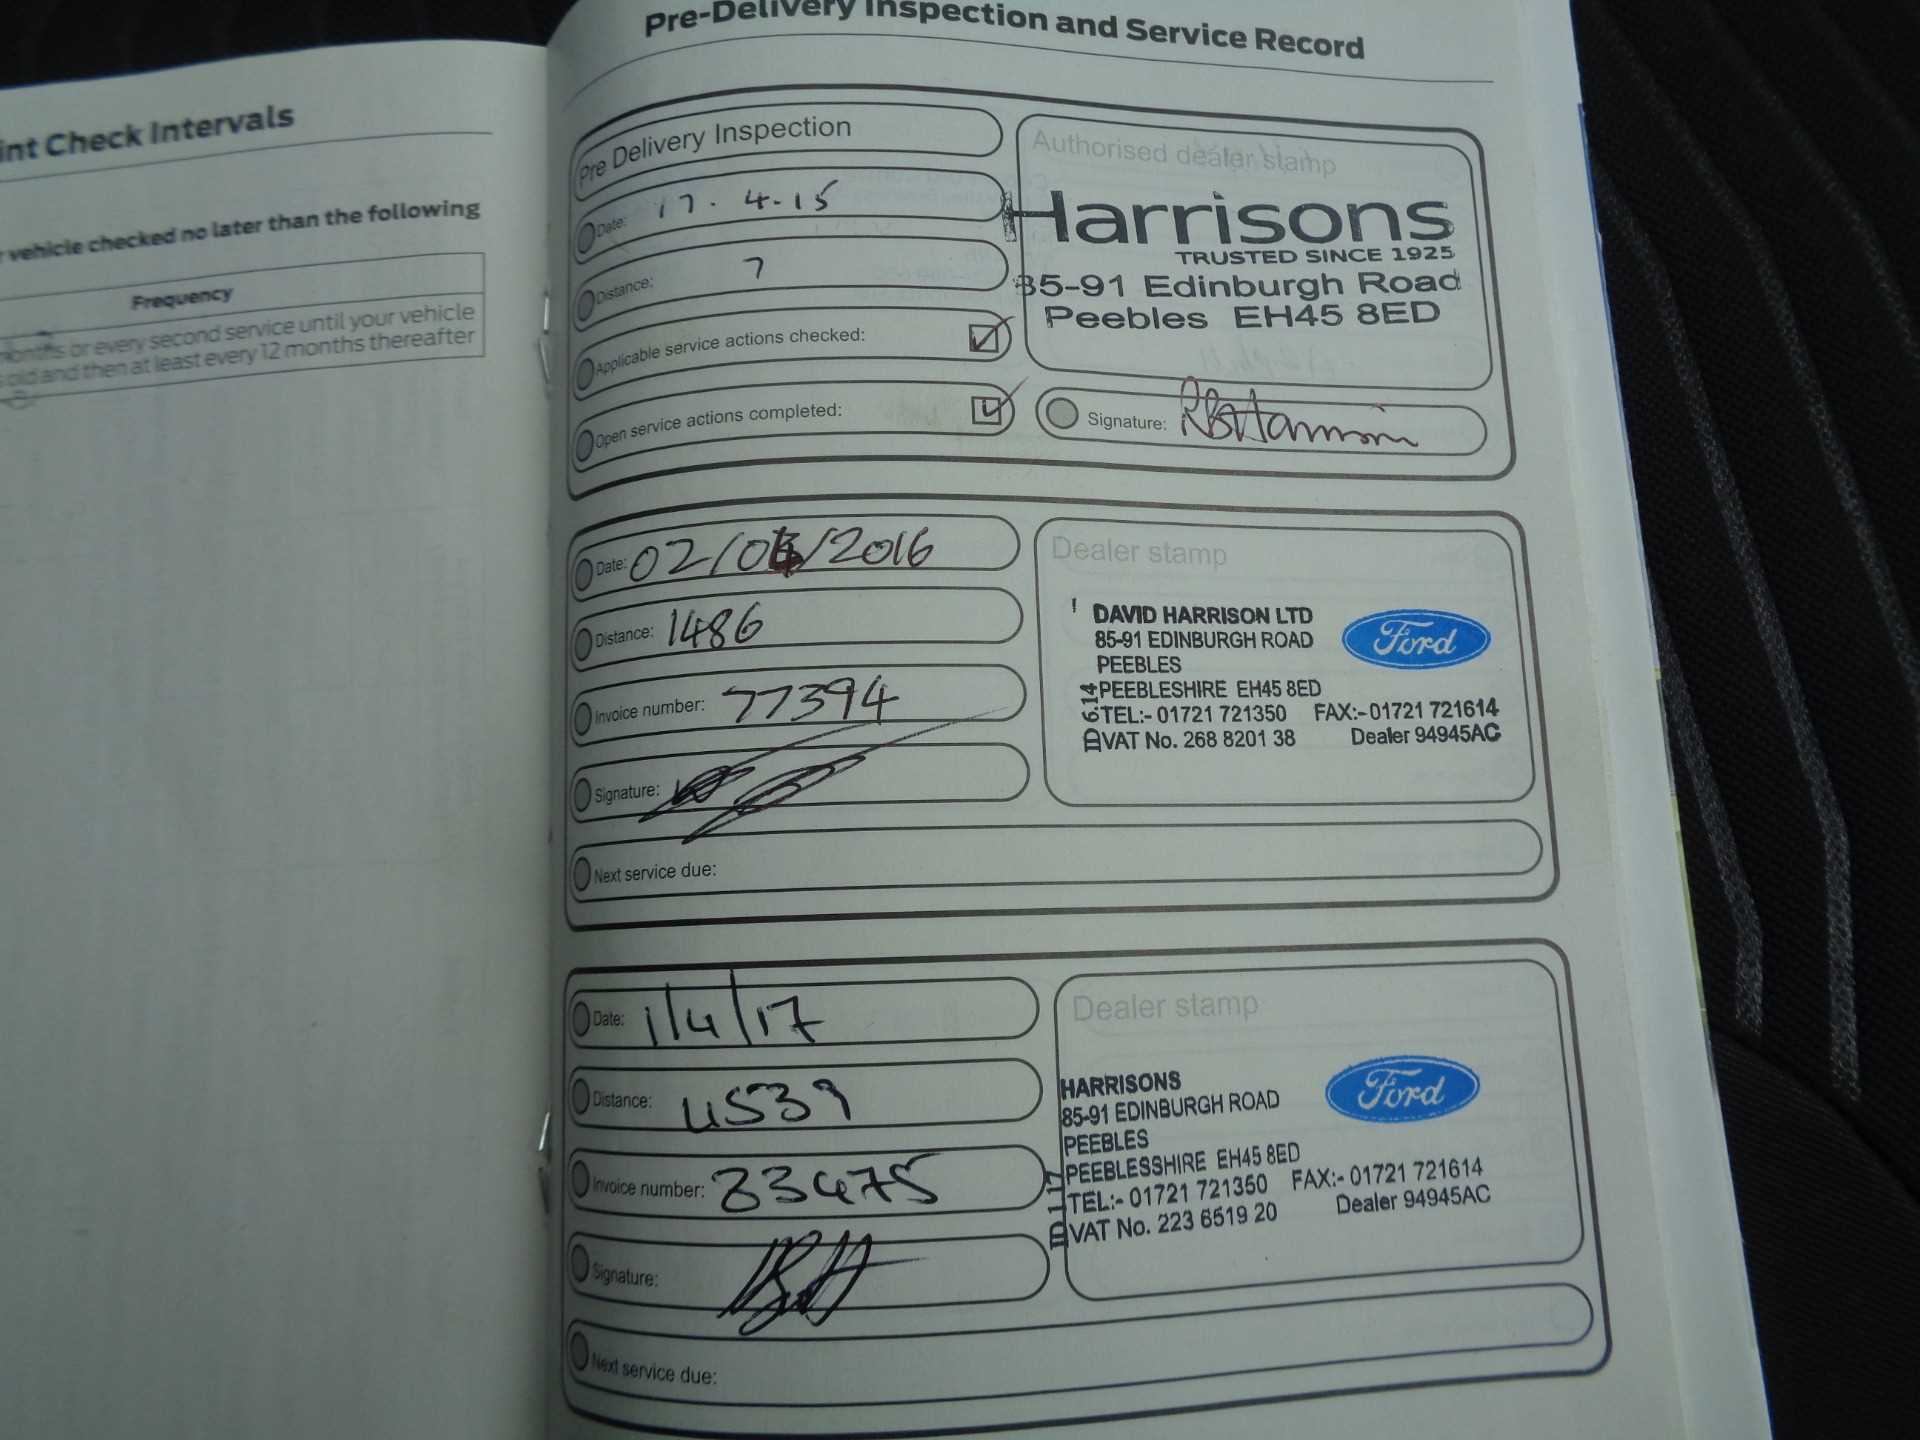 int Check Intervals
vehicle checked no later than the following
Frequency
months or every second service until your vehicle
old and then at least every 12 months thereafter
Pre-Delivery Inspection and Service Record
Pre Delivery Inspection
Date: 17.4.15
Distance: 7
Applicable service actions checked:
Open service actions completed:
Authorised dealer stamp
Harrisons
TRUSTED SINCE 1925
85-91 Edinburgh Road
Peebles EH45 8ED
Signature:
Date: 02/04/2016
Distance: 1486
Invoice number: 77394
Signature:
Next service due:
Dealer stamp
DAVID HARRISON LTD
85-91 EDINBURGH ROAD
PEEBLES
PEEBLESHIRE EH45 8ED
TEL:- 01721 721350 FAX:- 01721 721614
VAT No. 268 8201 38 Dealer 94945AC
ID 6.14
Ford
Date: 1/4/17
Distance: 4539
Invoice number: 83475
Signature:
Next service due:
Dealer stamp
HARRISONS
85-91 EDINBURGH ROAD
PEEBLES
PEEBLESSHIRE EH45 8ED
TEL:- 01721 721350 FAX:- 01721 721614
VAT No. 223 6519 20 Dealer 94945AC
ID 1.17
Ford